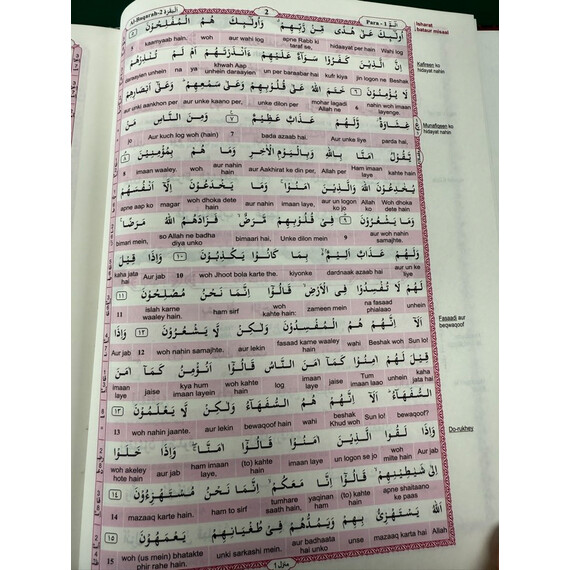 Al-Baqarah-2 البقرة ٢
2
Para - 1 الٓمّٓ ١
اُولٰٓئِكَ عَلٰى هُدًى مِّنْ رَّبِّهِمْ ۗ وَاُولٰٓئِكَ هُمُ الْمُفْلِحُوْنَ ﴿٥﴾
Wahi log hidaayat per hain apne Rabb ki taraf se, aur wahi log woh kaamyaab hain. 5
اِنَّ الَّذِيْنَ كَفَرُوْا سَوَآءٌ عَلَيْهِمْ ءَاَنْذَرْتَهُمْ اَمْ لَمْ تُنْذِرْهُمْ
Beshak jin logon ne kufr kiya barabar hai un per khwah Aap daraayein unhein ya na daraayein unhein
لَا يُؤْمِنُوْنَ ﴿٦﴾ خَتَمَ اللّٰهُ عَلٰى قُلُوْبِهِمْ وَعَلٰى سَمْعِهِمْ ؕ وَعَلٰٓى اَبْصَارِهِمْ
nahin woh imaan layenge. 6 mohar lagadi Allah ne unke dilon per aur unke kaano per, aur unki aankhon per
غِشَاوَةٌ وَّلَهُمْ عَذَابٌ عَظِيْمٌ ﴿٧﴾ وَمِنَ النَّاسِ مَنْ
parda hai, Aur unke liye bada azaab hai. 7 Aur kuch log woh (hain) jo
يَّقُوْلُ اٰمَنَّا بِاللّٰهِ وَبِالْيَوْمِ الْاٰخِرِ وَمَا هُمْ بِمُؤْمِنِيْنَ ﴿٨﴾
kahte hain Ham imaan laye Allah per aur Aakhirat ke din per, aur nahin hain woh imaan waaley. 8
يُخٰدِعُوْنَ اللّٰهَ وَالَّذِيْنَ اٰمَنُوْا ۚ وَمَا يَخْدَعُوْنَ اِلَّآ اَنْفُسَهُمْ
Woh dhoka dete hain Allah ko aur un logon ko jo imaan laye, aur nahin woh dhoka dete hain magar apne aap ko
وَمَا يَشْعُرُوْنَ ﴿٩﴾ فِيْ قُلُوْبِهِمْ مَّرَضٌ ۙ فَزَادَهُمُ اللّٰهُ مَرَضًا ۚ
aur woh nahin samajhte. 9 Unke dilon mein bimaari hai, so Allah ne badha diya unko bimari mein,
وَلَهُمْ عَذَابٌ اَلِيْمٌۢ ۙ بِمَا كَانُوْا يَكْذِبُوْنَ ﴿١٠﴾ وَاِذَا قِيْلَ
aur un ke liye dardnaak azaab hai kiyonke woh Jhoot bola karte the. 10 Aur jab kaha jata hai
لَهُمْ لَا تُفْسِدُوْا فِى الْاَرْضِ ۙ قَالُوْٓا اِنَّمَا نَحْنُ مُصْلِحُوْنَ ﴿١١﴾
unhein na fasaad phialaao zameen mein woh kahte hain: ham sirf islah karne waaley hain. 11
اَلَآ اِنَّهُمْ هُمُ الْمُفْسِدُوْنَ وَلٰكِنْ لَّا يَشْعُرُوْنَ ﴿١٢﴾ وَاِذَا
Sun lo! Beshak woh wahi fasaad karne waaley hain. aur lekin woh nahin samajhte. 12 Aur jab
قِيْلَ لَهُمْ اٰمِنُوْا كَمَآ اٰمَنَ النَّاسُ قَالُوْٓا اَنُؤْمِنُ كَمَآ اٰمَنَ
kaha jata hai unhein Tum imaan laao jaise imaan laye log woh kahte hain kya hum imaan layein jaise imaan laye
السُّفَهَآءُ ؕ اَلَآ اِنَّهُمْ هُمُ السُّفَهَآءُ وَلٰكِنْ لَّا يَعْلَمُوْنَ ﴿١٣﴾
bewaqoof? Sun lo! beshak Khud woh wahi bewaqoof hain aur lekin woh nahin jaante. 13
وَاِذَا لَقُوا الَّذِيْنَ اٰمَنُوْا قَالُوْٓا اٰمَنَّا ۚ وَاِذَا خَلَوْا
Aur jab woh milte hain un logon se jo imaan laye, (to) kahte hain ham imaan laye, aur jab woh akeley hote hain
اِلٰى شَيٰطِيْنِهِمْ ۙ قَالُوْٓا اِنَّا مَعَكُمْ ۙ اِنَّمَا نَحْنُ مُسْتَهْزِءُوْنَ ﴿١٤﴾
apne shaitaano ke paas (to) kahte hain yaqinan ham tumhare saath hain, ham to sirf mazaaq karte hain. 14
اَللّٰهُ يَسْتَهْزِئُ بِهِمْ وَيَمُدُّهُمْ فِيْ طُغْيَانِهِمْ يَعْمَهُوْنَ ﴿١٥﴾
Allah mazaaq karta hai unse aur badhaata hai unko unki sarkashi mein. woh (us mein) bhatakte phir rahe hain. 15
منزل ١
Isharat
Kafireen ko
hidayat nahin
Munafiqeen ko
hidayat nahin
Fasaadi aur
beqwaqoof
Do-rukhey